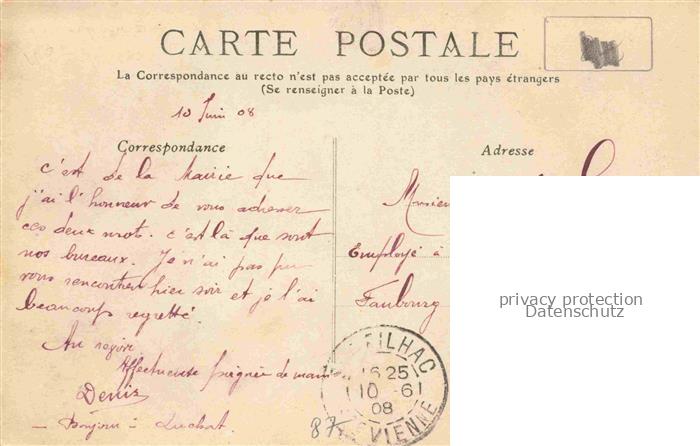 CARTE POSTALE
La Correspondance au recto n'est pas acceptée par tous les pays étrangers
(Se renseigner à la Poste)
10 Juin 08
Correspondance
c'est de la Mairie que
j'ai l'honneur de vous adresser
ces deux mots. c'est là que sont
nos bureaux. Je n'ai pas pu
vous rencontrer hier soir et je l'ai
beaucoup regretté.
Au revoir
Affectueuse poignée de main
Denis
— Bonjour à
Adresse
Employé à
Faubourg
privacy protection
Datenschutz
16 25
10 - 6
08
VIENNE
87